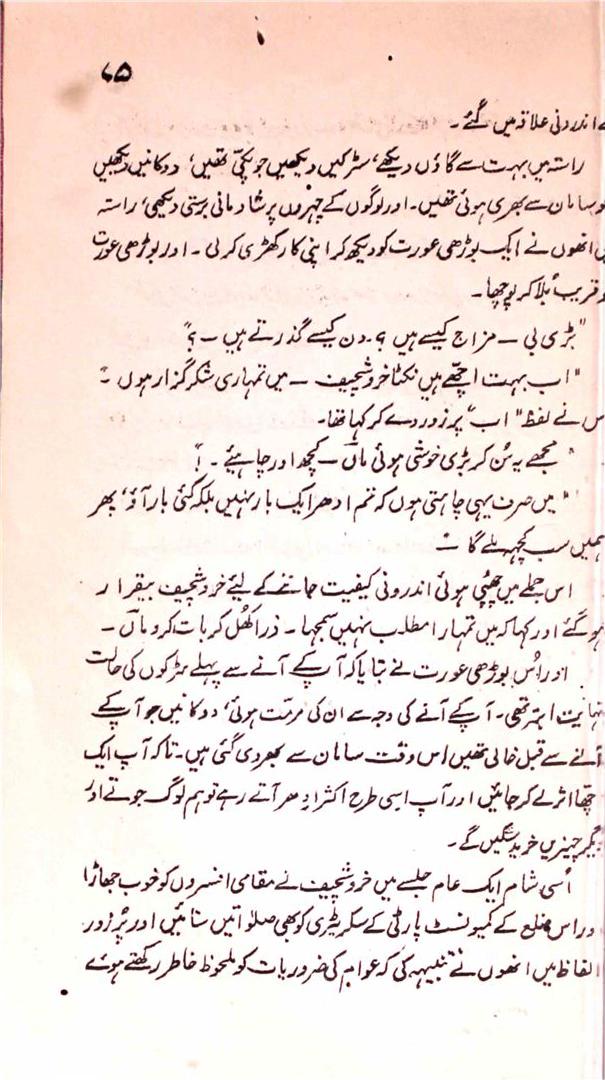 ۶۵
اندرونی علاقہ میں گئے۔
راستہ میں بہت سے گاؤں دیکھے، سڑکیں دیکھیں جو پکی تھیں، دوکانیں دیکھیں
سامان سے بھری ہوئی تھیں۔ اور لوگوں کے چہروں پر شادمانی برستی دیکھی، راستہ
انھوں نے ایک بوڑھی عورت کو دیکھ کر اپنی کار کھڑی کرلی۔ اور بوڑھی عورت
قریب بلا کر پوچھا۔
"بڑی بی ــ مزاج کیسے ہیں؟ دن کیسے گذرتے ہیں ــ؟"
"اب بہت اچھے ہیں نکتا خروشچیف ــ میں تمہاری شکر گزار ہوں۔"
س نے لفظ "اب" پر زور دے کر کہا تھا۔
"مجھے یہ سُن کر بڑی خوشی ہوئی ماں ــ کچھ اور چاہئیے۔!"
"میں صرف یہی چاہتی ہوں کہ تم ادھر ایک بار نہیں بلکہ کئی بار آؤ، پھر
ہمیں سب کچھ ملے گا ــ
اس جملے میں چھپی ہوئی اندرونی کیفیت جاننے کے لیئے خروشچیف بیقرار
ہو گئے اور کہا کہ میں تمہارا مطلب نہیں سمجھا۔ ذرا کھُل کر بات کرو ماں۔
اور اُس بوڑھی عورت نے بتایا کہ آپکے آنے سے پہلے سڑکوں کی حالت
نہایت ابتر تھی۔ آپکے آنے کی وجہ سے ان کی مرمت ہوئی، دوکانیں جو آپکے
آنے سے قبل خالی تھیں اس وقت سامان سے بھر دی گئی ہیں۔ تاکہ آپ ایک
چھا اثر لے کر جائیں اور آپ اسی طرح اکثر ادھر آتے رہے تو ہم لوگ جوتے اور
دیگر چیزیں خرید سکیں گے۔
اُسی شام ایک عام جلسے میں خروشچیف نے مقامی افسروں کو خوب جھاڑا
ور اس ضلع کے کمیونسٹ پارٹی کے سکریٹری کو بھی صلواتیں سنائیں اور پُرزور
الفاظ میں انھوں نے تنبیہہ کی کہ عوام کی ضروریات کو ملحوظ خاطر رکھتے ہوئے